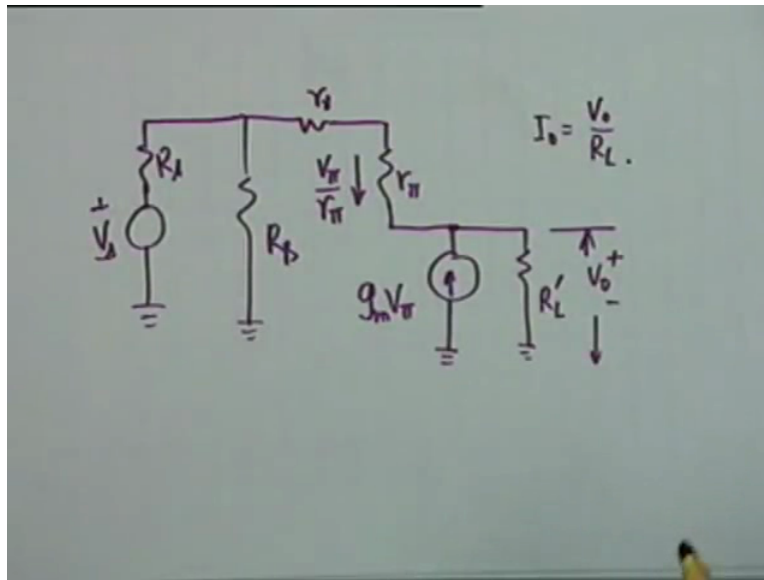 rₓ
I₀ = V₀/R_L.
Rₛ
Vπ/rπ ↓
rπ
+
Vₛ
R_B
gₘVπ
R_L'
V₀
+
-